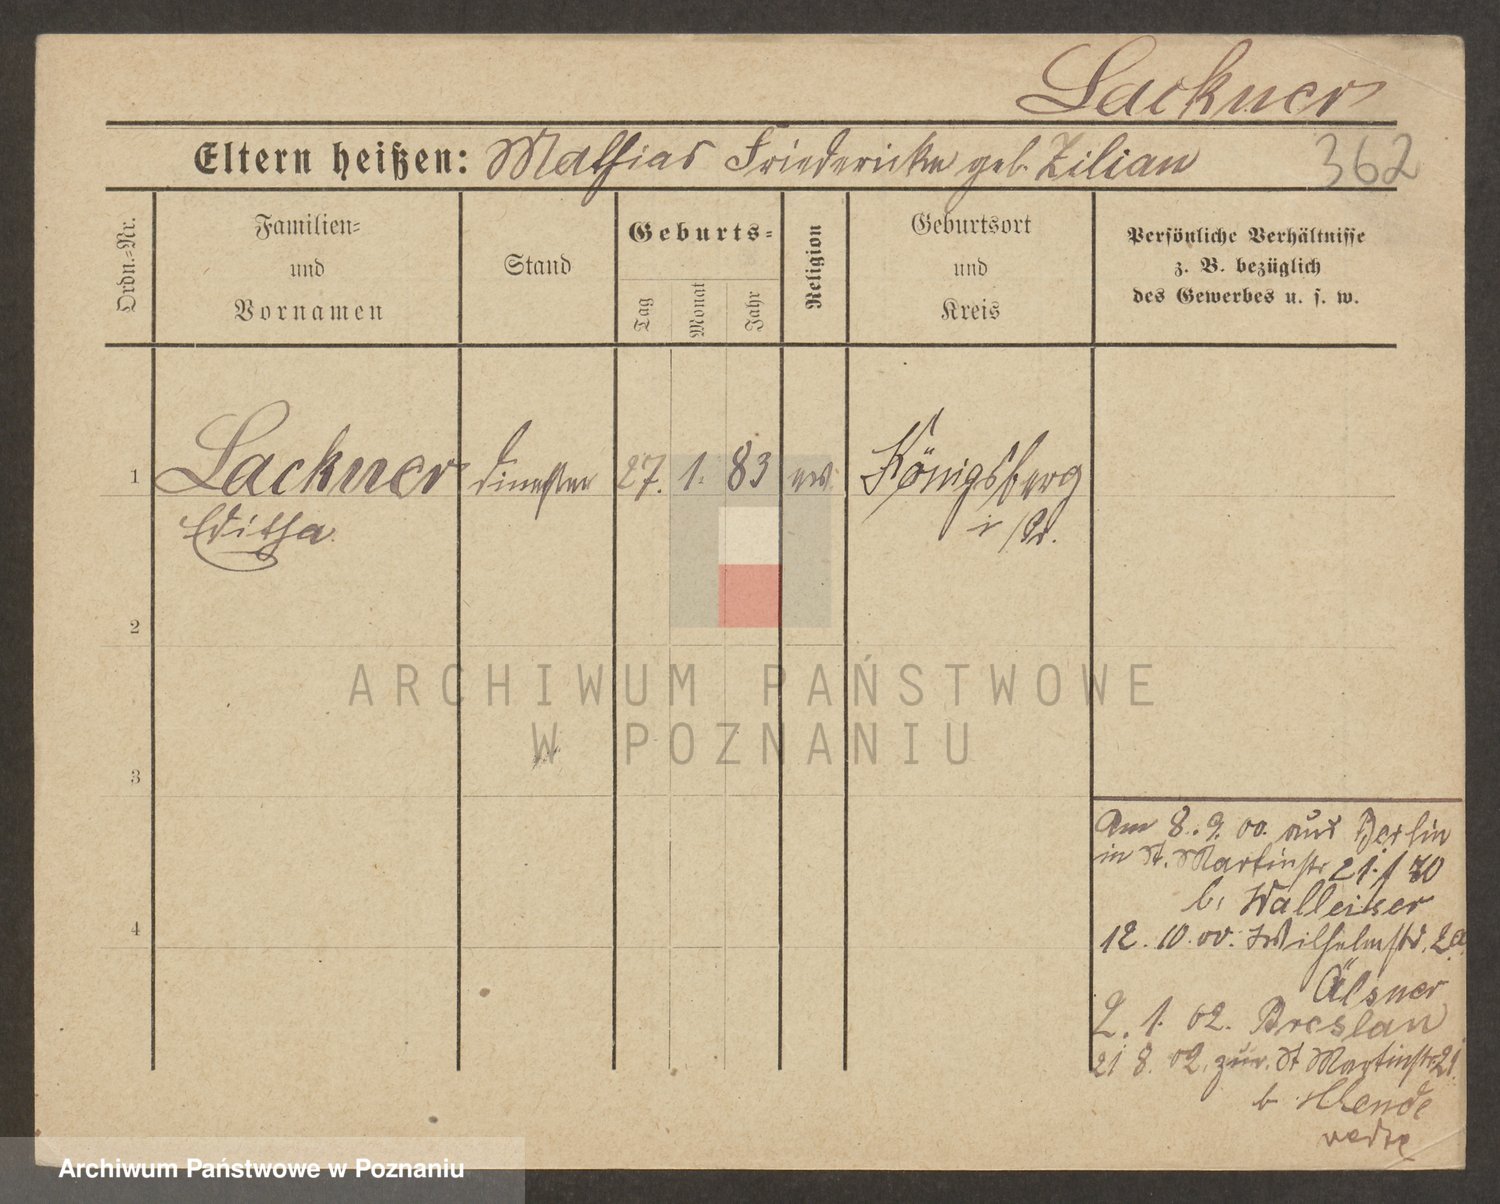 Lackner
Eltern heißen: Mathias Friedericke geb. Zilian 362
Ordn.-Nr.
Familien-
und
Vornamen
Stand
Geburts-
Tag
Monat
Jahr
Religion
Geburtsort
und
Kreis
Persönliche Verhältnisse
z. B. bezüglich
des Gewerbes u. s. w.
1 Lackner 27. 1. 83 ev. Königsberg
Editha i/Pr.
2
3
4
Am 8. 9. 00. aus Berlin
in St. Martinstr 21.
b. Walleiser
12. 10. 00. Wilhelmstr. 2a
Älsner
2. 1. 02. Breslau
21 8. 02. zur. St Martinstr 21
b Wende
ARCHIWUM PAŃSTWOWE
W POZNANIU
Archiwum Państwowe w Poznaniu